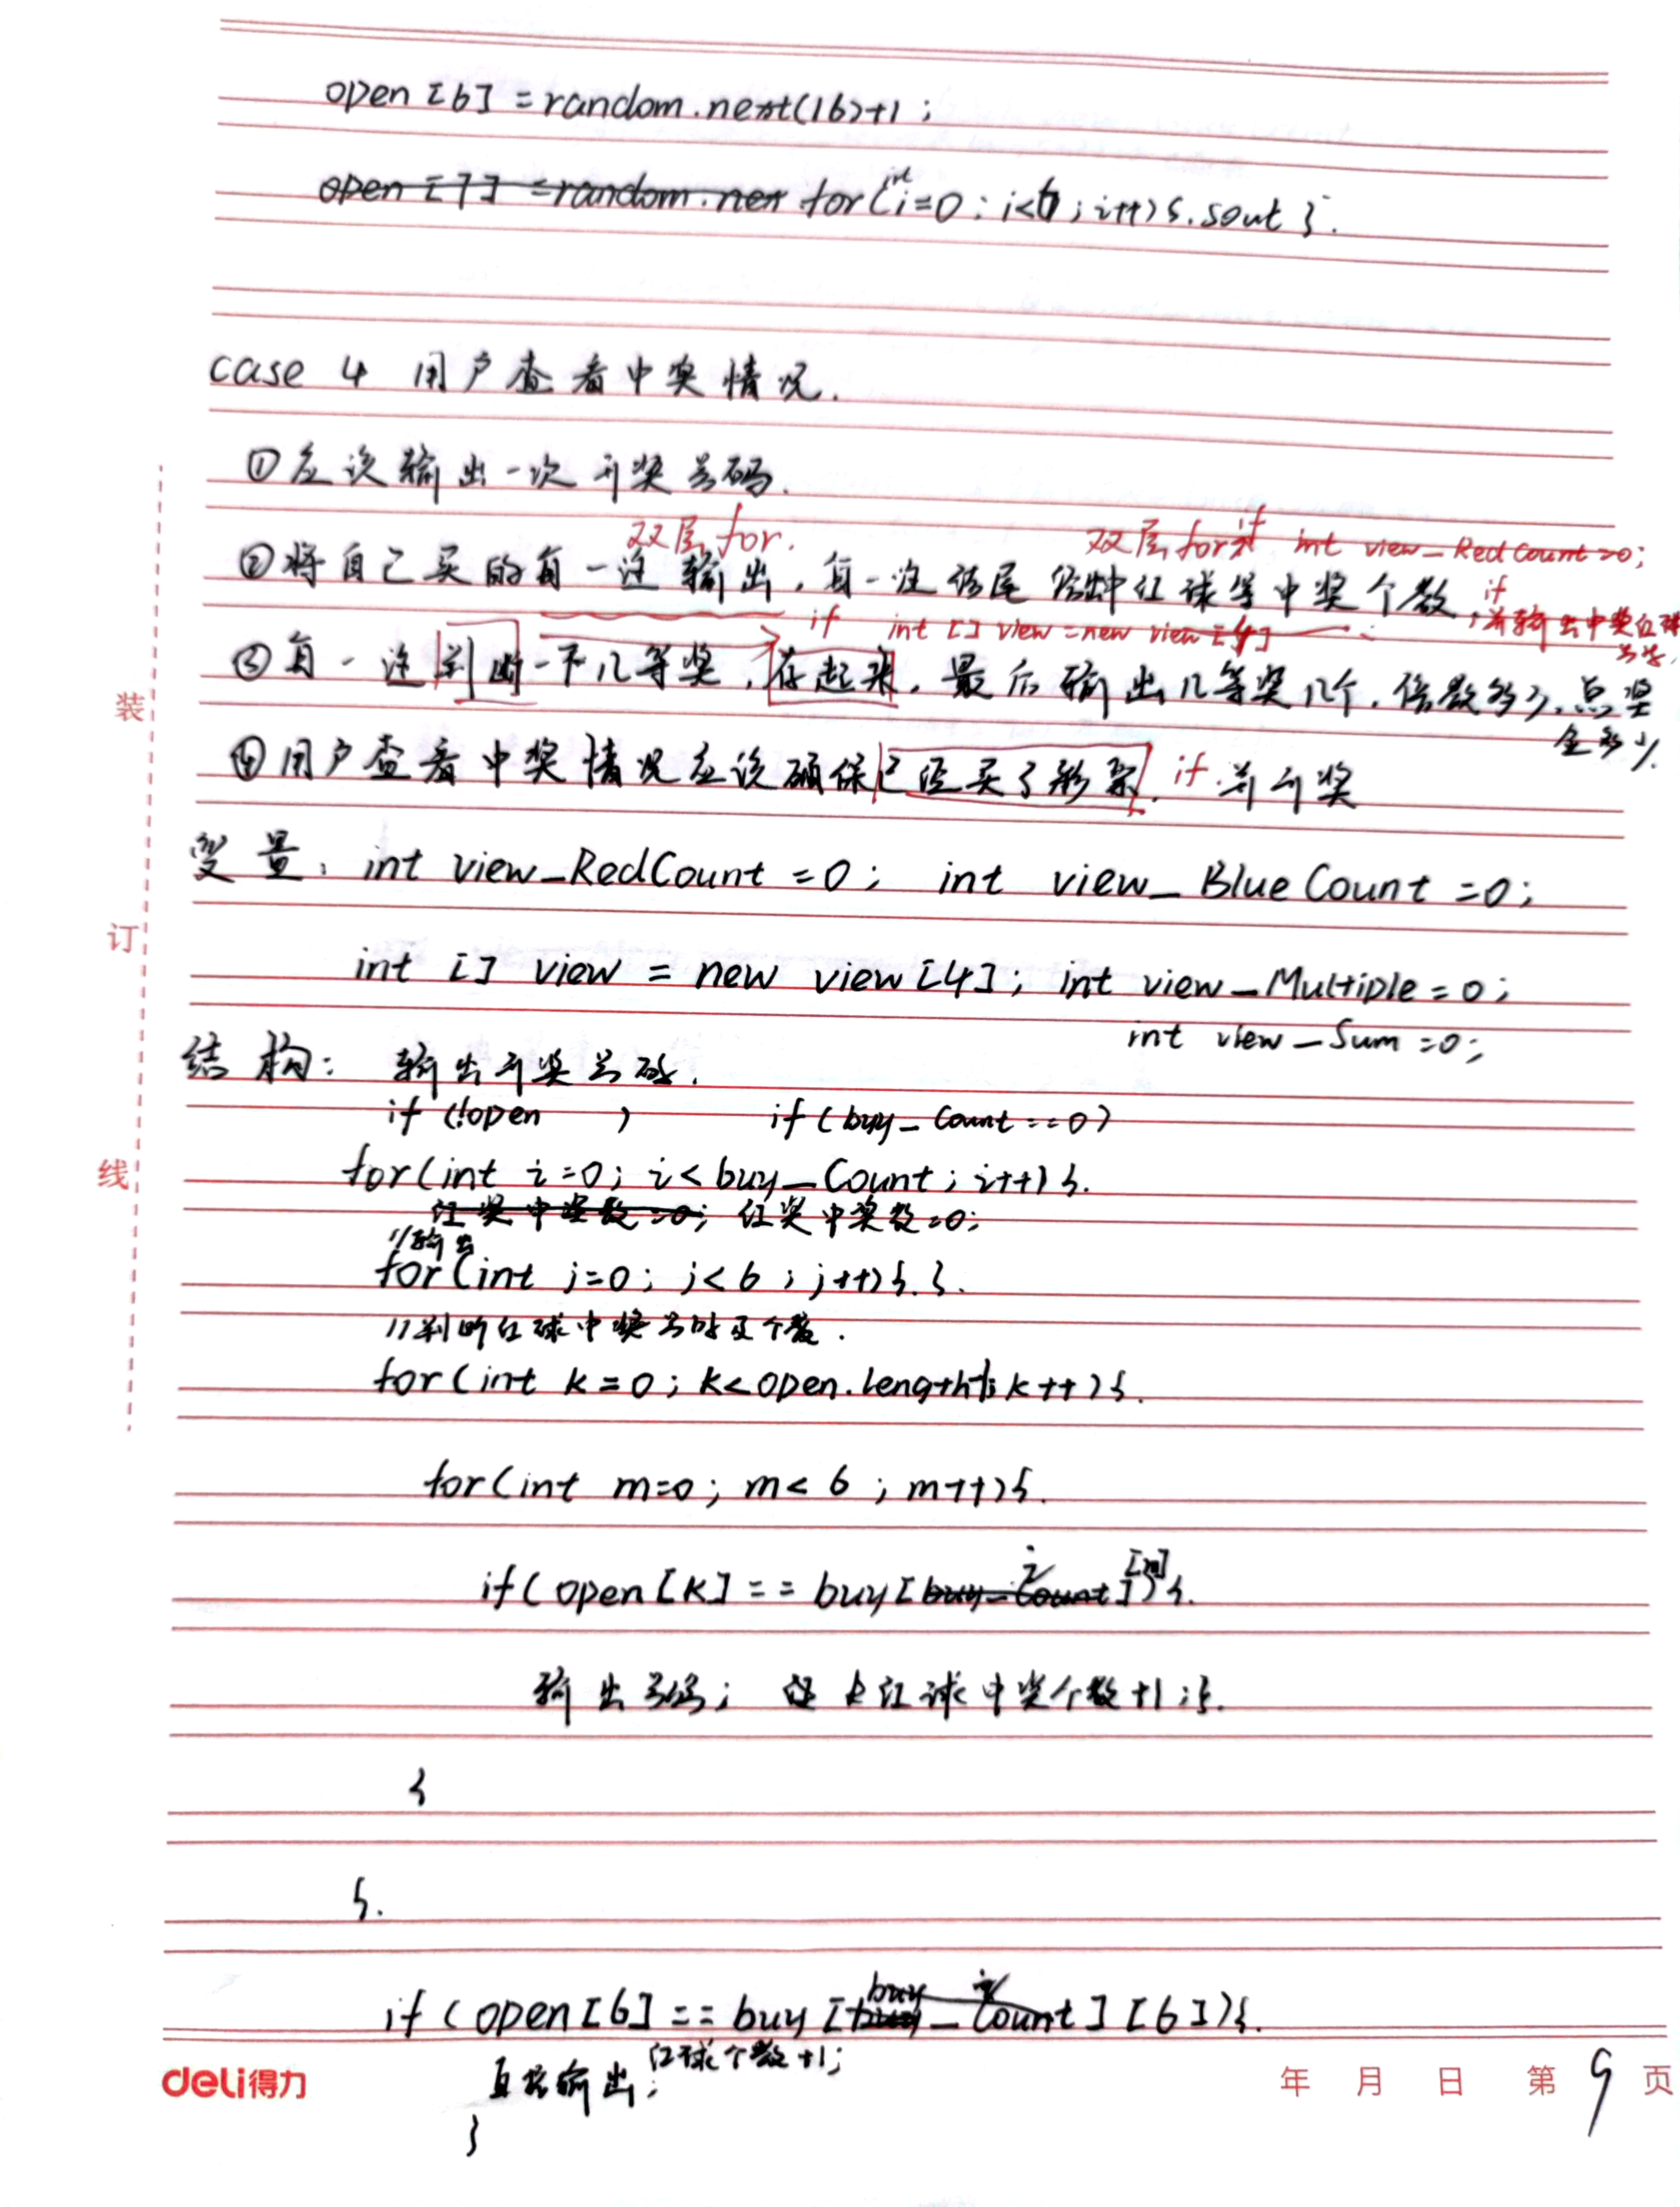 open [6] = random.next(16)+1 ;
open [7] = random.nex for (int i=0 ; i<6 ; i++) { . sout } .
case 4 用户查看中奖情况.
①应该输出一次开奖号码.
双层 for. 双层 for if int view_RedCount=0;
②将自己买的每一注输出, 每一注该尾 中红球等中奖个数,
if 并输出中奖红球号码,
if int [] view = new view [4]
③每一注判断一下几等奖, 存起来, 最后输出几等奖几个, 倍数多少, 总奖
金多少.
④用户查看中奖情况应该确保已经买了彩票. if 并开奖
变量: int view_RedCount = 0 ; int view_BlueCount = 0 ;
int [] view = new view [4] ; int view_Multiple = 0 ;
int view_Sum = 0 ;
结构: 输出开奖号码.
if (!open ) if (buy_Count == 0)
for (int i=0 ; i < buy_Count ; i++) {.
红奖中奖数=0; 红奖中奖数=0;
//输出
for (int j=0 ; j < 6 ; j++) {. }.
//判断红球中奖号码及个数.
for (int k = 0 ; k < open.length-1; k++) {.
for (int m=0 ; m < 6 ; m++) {.
if (open [k] == buy [buy_Count i] [m]) {.
输出号码; 红球中奖个数+1 ; }.
}
}.
if (open [6] == buy [buy_Count i] [6]) {.
直接输出; 红球个数+1;
}
装
订
线
deli得力
年 月 日 第 9 页